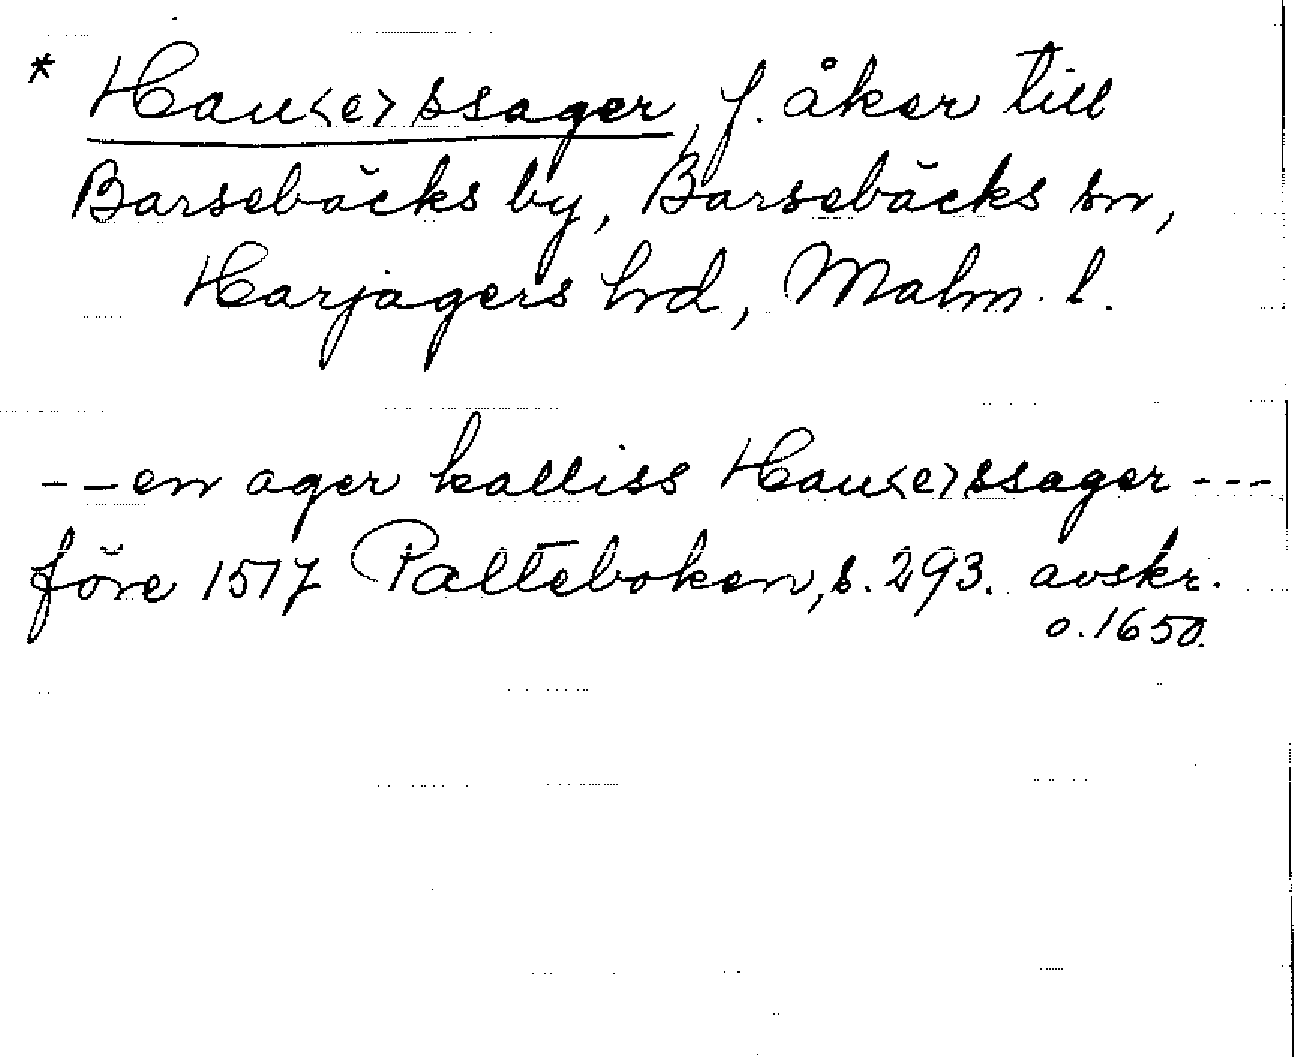 * Hau<e>rssager, f. åker till
Barsebäcks by, Barsebäcks sn,
Harjagers hrd, Malm. l.
--en ager kalliss Hau<e>rssager ---
före 1517 Palteboken, s. 293. avskr.
o. 1650.